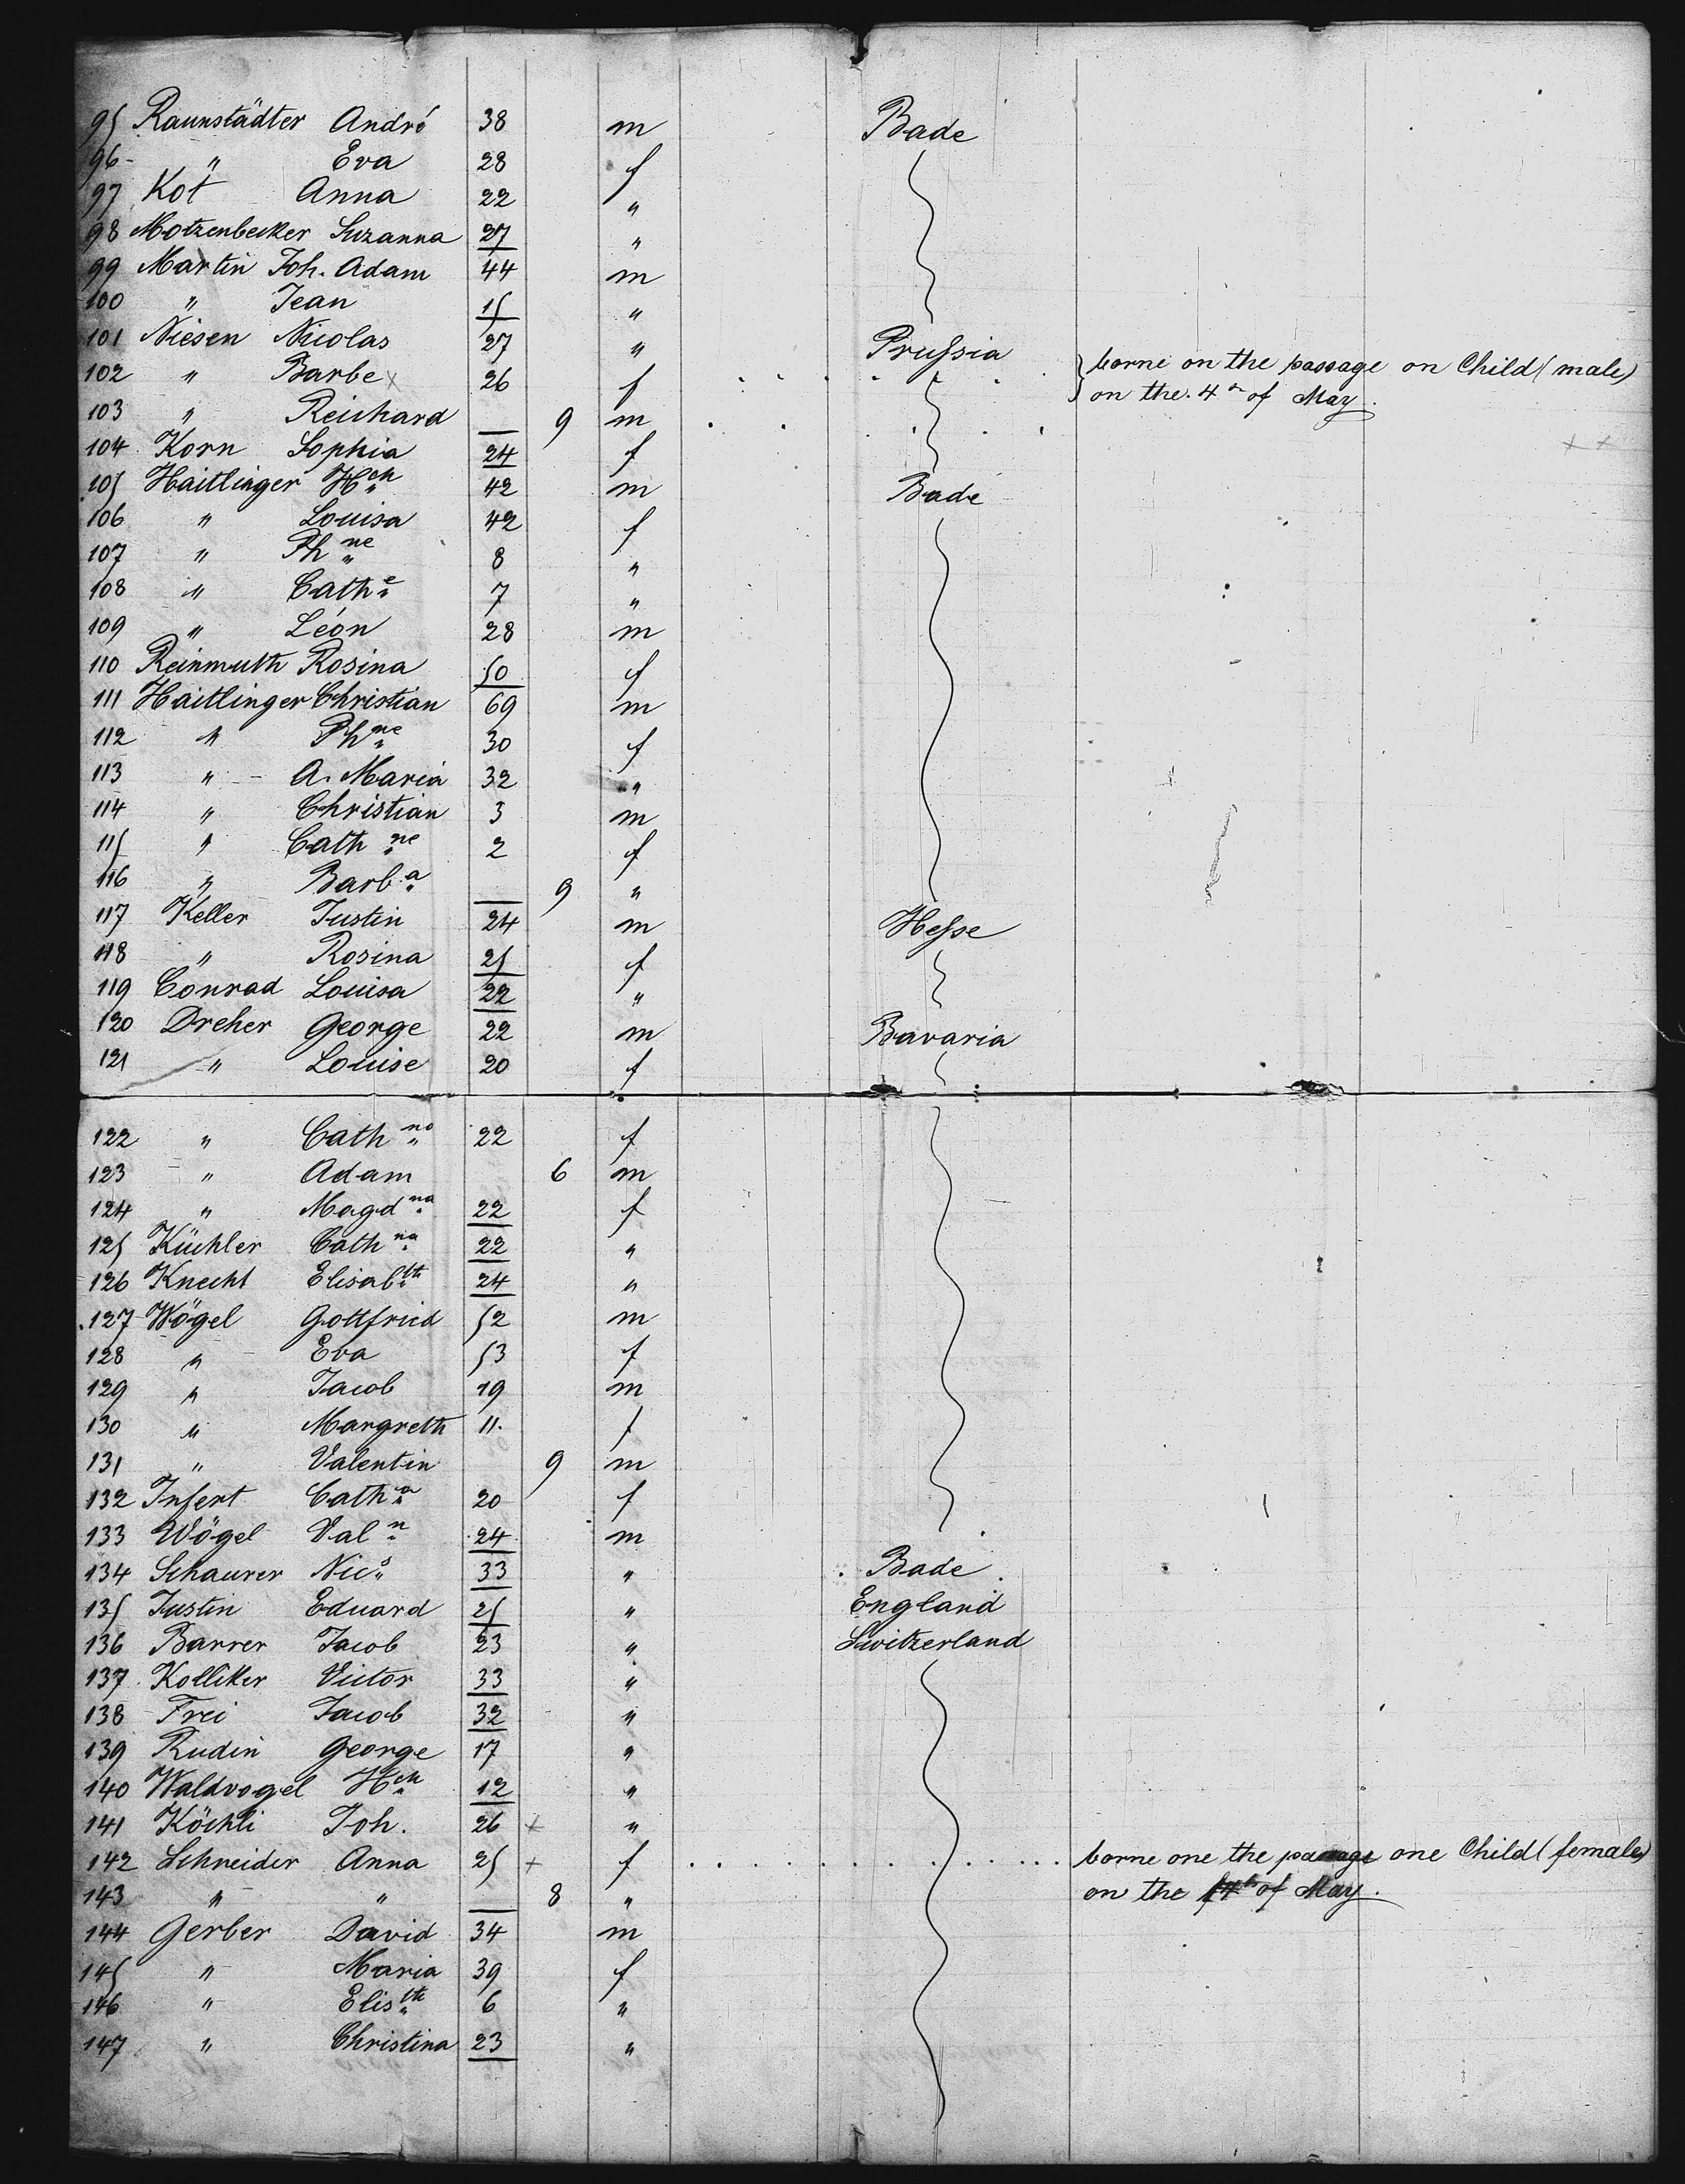 95 Raunstädter André 38 m Bade
96 - " Eva 28 f
97 Kot Anna 22 "
98 Motzenbecker Suzanna 27 "
99 Martin Joh. Adam 44 m
100 " Jean 15 "
101 Niesen Nicolas 27 " Prussia
102 " Barbe x 26 f borne on the passage on Child (male)
on the 4th of May.
103 " Reichard 9 m
104 Korn Sophia 24 f
105 Haitlinger Hch 42 m Bade
106 " Louisa 42 f
107 " Phne 8 "
108 " Cathe 7 "
109 " Léon 28 m
110 Reinmuth Rosina 50 f
111 Haitlinger Christian 69 m
112 " Phne 30 f
113 " A. Maria 32 "
114 " Christian 3 m
115 " Cathne 2 f
116 " Barba 9 "
117 Keller Justin 24 m Hesse
118 " Rosina 25 f
119 Conrad Louisa 22 "
120 Dreher George 22 m Bavaria
121 " Louise 20 f
122 " Cathne 22 f
123 " Adam 6 m
124 " Magdna 22 f
125 Küchler Cathna 22 "
126 Knecht Elisabth 24 "
127 Wögel Gottfried 52 m
128 " Eva 53 f
129 " Jacob 19 m
130 " Margreth 11. f
131 " Valentin 9 m
132 Infert Catha 20 f
133 Wögel Valn 24 m
134 Schaurer Nics 33 " Bade
135 Justin Eduard 25 " England
136 Barrer Jacob 23 " Switzerland
137 Kolliker Victor 33 "
138 Frei Jacob 32 "
139 Rudin George 17 "
140 Waldvogel Hch 12 "
141 Köchli Joh. 26 x "
142 Schneider Anna 25 x f borne one the passage one Child (female)
on the of May.
143 " " 8 "
144 Gerber David 34 m
145 " Maria 39 f
146 " Elisth 6 "
147 " Christina 23 "